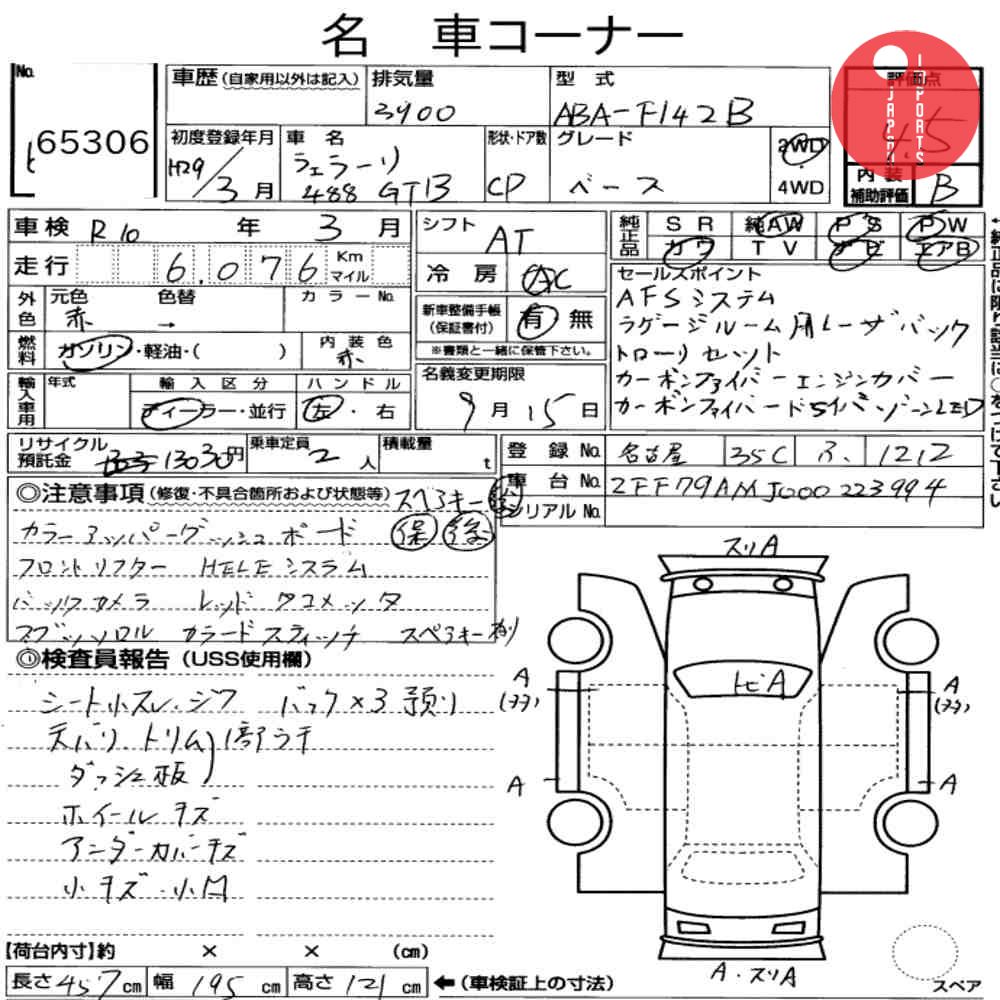 名 車コーナー
No. 65306
車歴(自家用以外は記入) 排気量 3900 型式 ABA-F142B 評価点 4.5
JAPAN IMPORTS
初度登録年月 H29/3月 車名 フェラーリ 488 GTB 形状・ドア数 CP グレード ベース 2WD・4WD 内装補助評価 B
車検 R10年 3月 シフト AT 純正品 SR 純AW PS PW
走行 6,076 Km マイル 冷房 AC カワ TV ナビ エアB
外色 元色 赤 色替 → カラーNo. 新車整備手帳(保証書付) 有 無
※書類と一緒に保管下さい。
燃料 ガソリン・軽油・( ) 内装色 赤
輸入車用 年式 輸入区分 ディーラー・並行 ハンドル 左・右
名義変更期限 9月15日
セールスポイント
AFSシステム
ラゲージルーム用レーザバック
トローリセット
カーボンファイバーエンジンカバー
カーボンファイバードライバーゾーンLED
リサイクル預託金 13030円 乗車定員 2人 積載量 t
登録No. 名古屋 35C ふ 1212
車台No. ZFF79AMJ000223994
シリアルNo.
◎注意事項(修復・不具合箇所および状態等) スペアキー
カラーアッパーダッシュボード 保 後
フロントリフター HELEシステム
バックカメラ レッドタコメータ
カラードスティッチ スペアキー
◎検査員報告(USS使用欄)
シート小スレ・シワ バック×3預り
天バリ トリム 1部ラチ
ダッシュ板
ホイールキズ
アンダーカバーキズ
小キズ・小凹
スリA
トビA
A
A
A
A
A・スリA
スペア
【荷台内寸】約 × × (cm)
長さ 457cm 幅 195cm 高さ 121cm ←(車検証上の寸法)